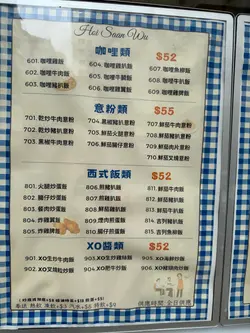 Hoi Saan Wu
咖喱類 $52
601. 咖喱雞飯
602. 咖喱牛肉飯
603. 咖喱雞扒飯
604. 咖喱豬扒飯
605. 咖喱牛腩飯
606. 咖喱雞翼飯
607. 咖喱魚柳飯
608. 咖喱牛肉飯
意粉類 $55
701. 乾炒牛肉意粉
702. 乾炒豬扒意粉
703. 黑椒牛肉意粉
704. 黑椒豬扒意粉
705. 鮮茄火腿意粉
706. 鮮茄腸仔意粉
707. 鮮茄牛肉意粉
708. 鮮茄豬扒意粉
709. 鮮茄雞扒意粉
710. 鮮茄叉燒意粉
西式飯類 $52
801. 火腿炒蛋飯
802. 腸仔炒蛋飯
803. 餐肉炒蛋飯
804. 炸雞翼飯
805. 炸雞髀飯
806. 煎豬扒飯
807. 煎雞扒飯
808. 腸仔煎蛋飯
809. 火腿煎蛋飯
810. 餐肉煎蛋飯
811. 鮮茄牛肉飯
812. 鮮茄豬扒飯
813. 鮮茄雞扒飯
814. 吉列豬扒飯
815. 吉列魚柳飯
XO醬類 $52
901. XO生炒牛肉飯
902. XO叉燒粒炒飯
903. XO生炒雞絲飯
904. XO肥牛炒飯
905. XO海鮮炒飯
906. XO豬頸肉炒飯
供應時間: 全日供應